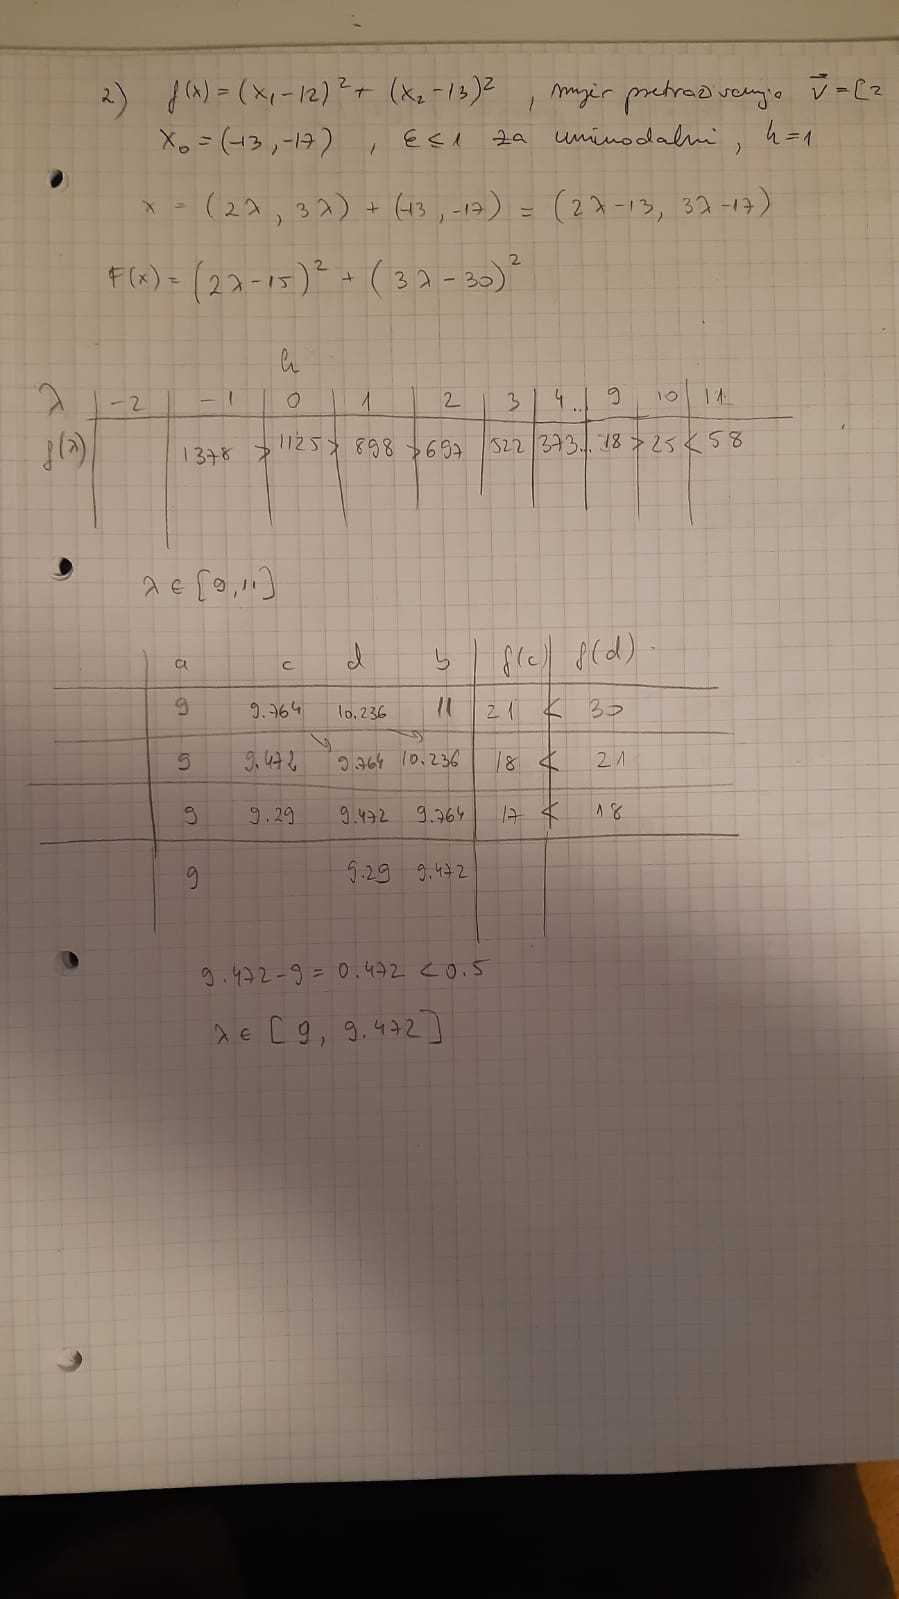 2) f(x) = (x₁-12)² + (x₂-13)² , smjer pretraživanja v⃗ = [2
x₀ = (-13, -17) , ε ≤ 1 za unimodalni , h=1
x = (2λ, 3λ) + (-13, -17) = (2λ-13, 3λ-17)
F(x) = (2λ-15)² + (3λ-30)²
h
λ | -2 | -1 | 0 | 1 | 2 | 3 | 4.. | 9 | 10 | 11
f(λ) | | 1378 > 1125 > 898 > 697 | 522 | 373.. | 18 > 25 < 58
λ ∈ [9, 11]
a c d b | f(c) | f(d)
9 9.764 10.236 11 | 21 < 30
9 9.472 9.764 10.236 | 18 < 21
9 9.29 9.472 9.764 | 17 < 18
9 9.29 9.472
9.472-9 = 0.472 < 0.5
λ ∈ [9, 9.472]